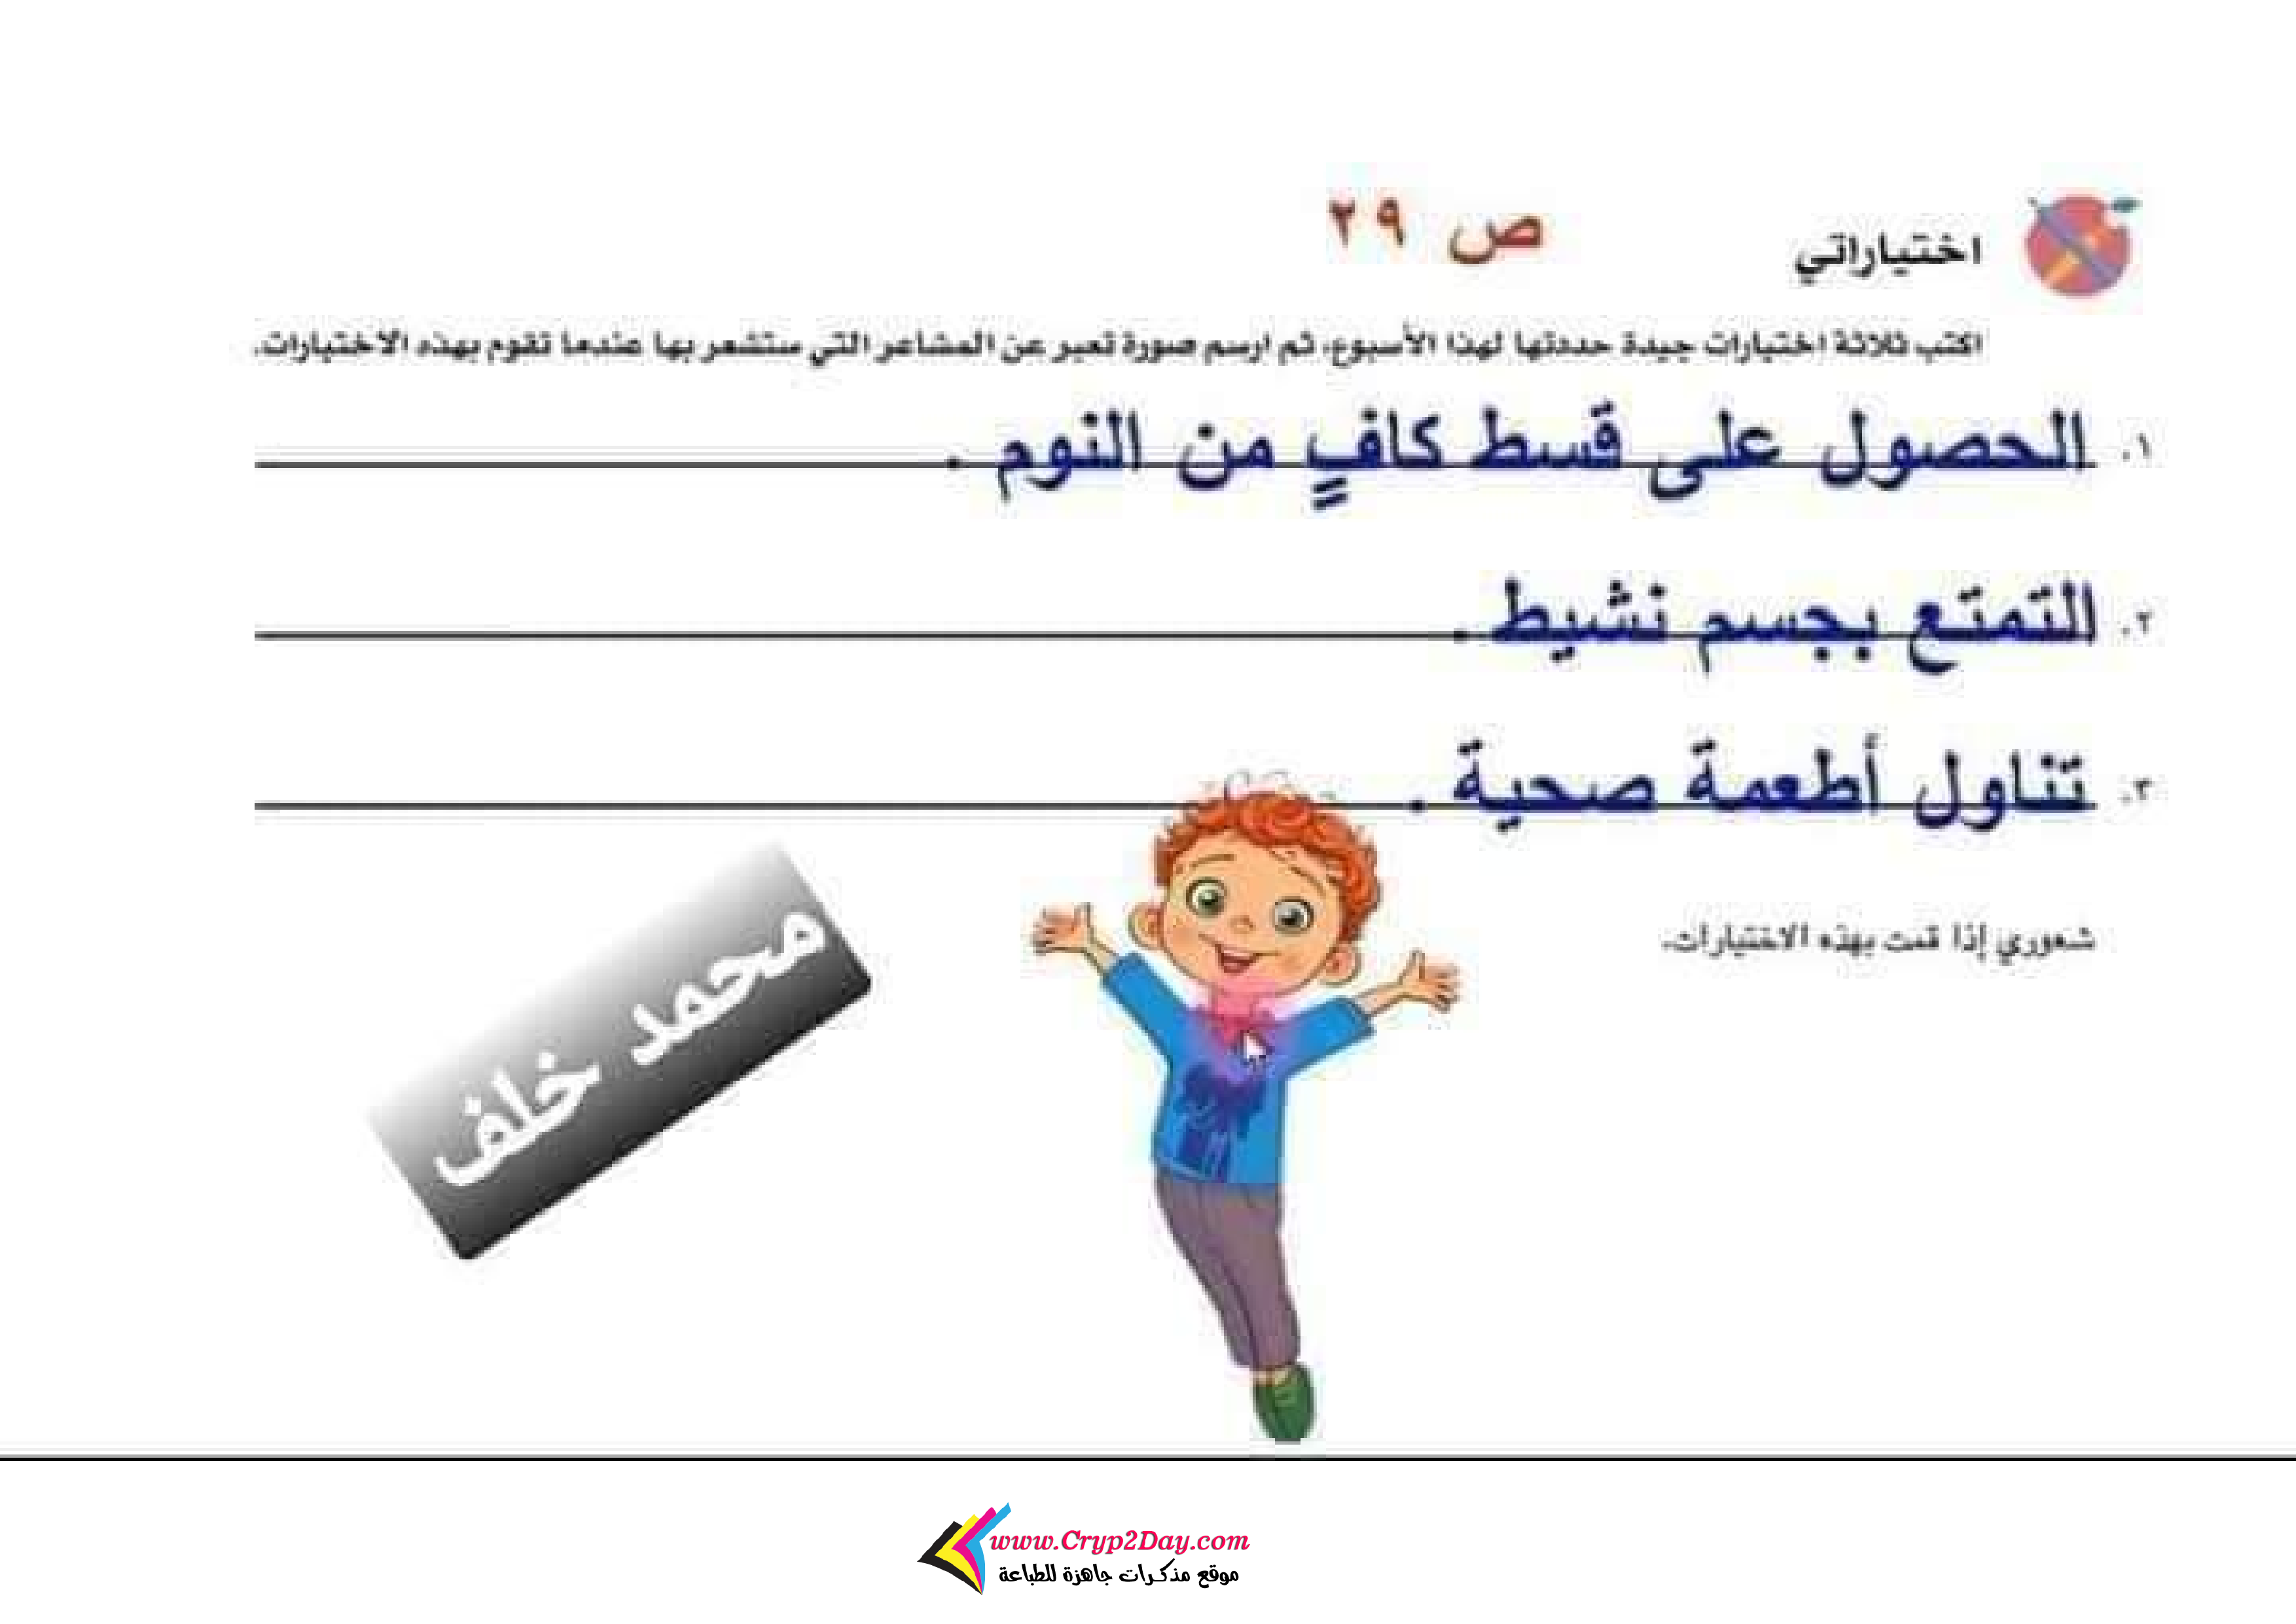 اختياراتي
ص ٢٩
اكتب ثلاثة اختيارات جيدة حددتها لهذا الأسبوع، ثم ارسم صورة تعبر عن المشاعر التي ستشعر بها عندما تقوم بهذه الاختيارات.
١. الحصول على قسط كافٍ من النوم .
٢. التمتع بجسم نشيط .
٣. تناول أطعمة صحية .
شعوري إذا قمت بهذه الاختيارات.
محمد خلف
www.Cryp2Day.com
موقع مذكرات جاهزة للطباعة